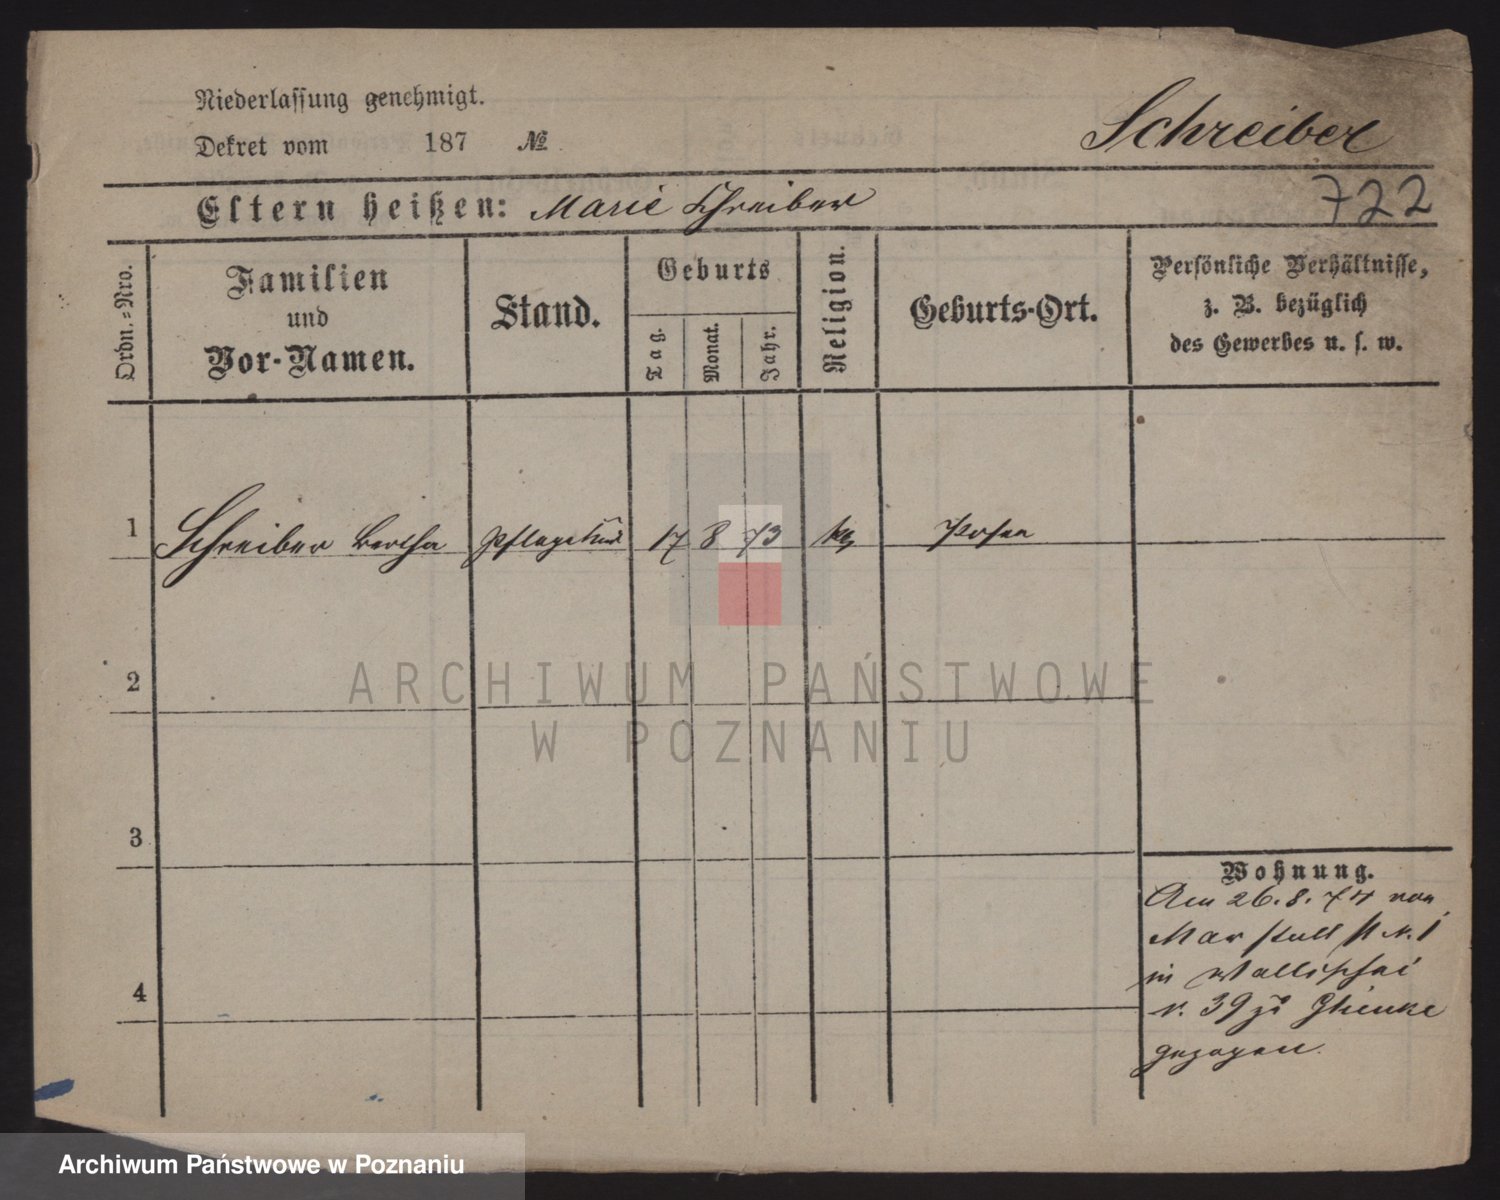 Niederlassung genehmigt.
Schreiber
Dekret vom 187 №
Eltern heißen: Marie Schreiber
722
Ordn.=Nro.
Familien
und
Vor-Namen.
Stand.
Geburts
Tag.
Monat.
Jahr.
Religion.
Geburts-Ort.
Persönliche Verhältnisse,
z. B. bezüglich
des Gewerbes u. s. w.
1 Schreiber Bertha Pflegekind 17 8 73 Posen
2
ARCHIWUM PAŃSTWOWE
W POZNANIU
3
4
Wohnung.
Am 26.8.74 von
Marstall st N. 1
in Wallischei
N. 39 zu
gezogen.
Archiwum Państwowe w Poznaniu